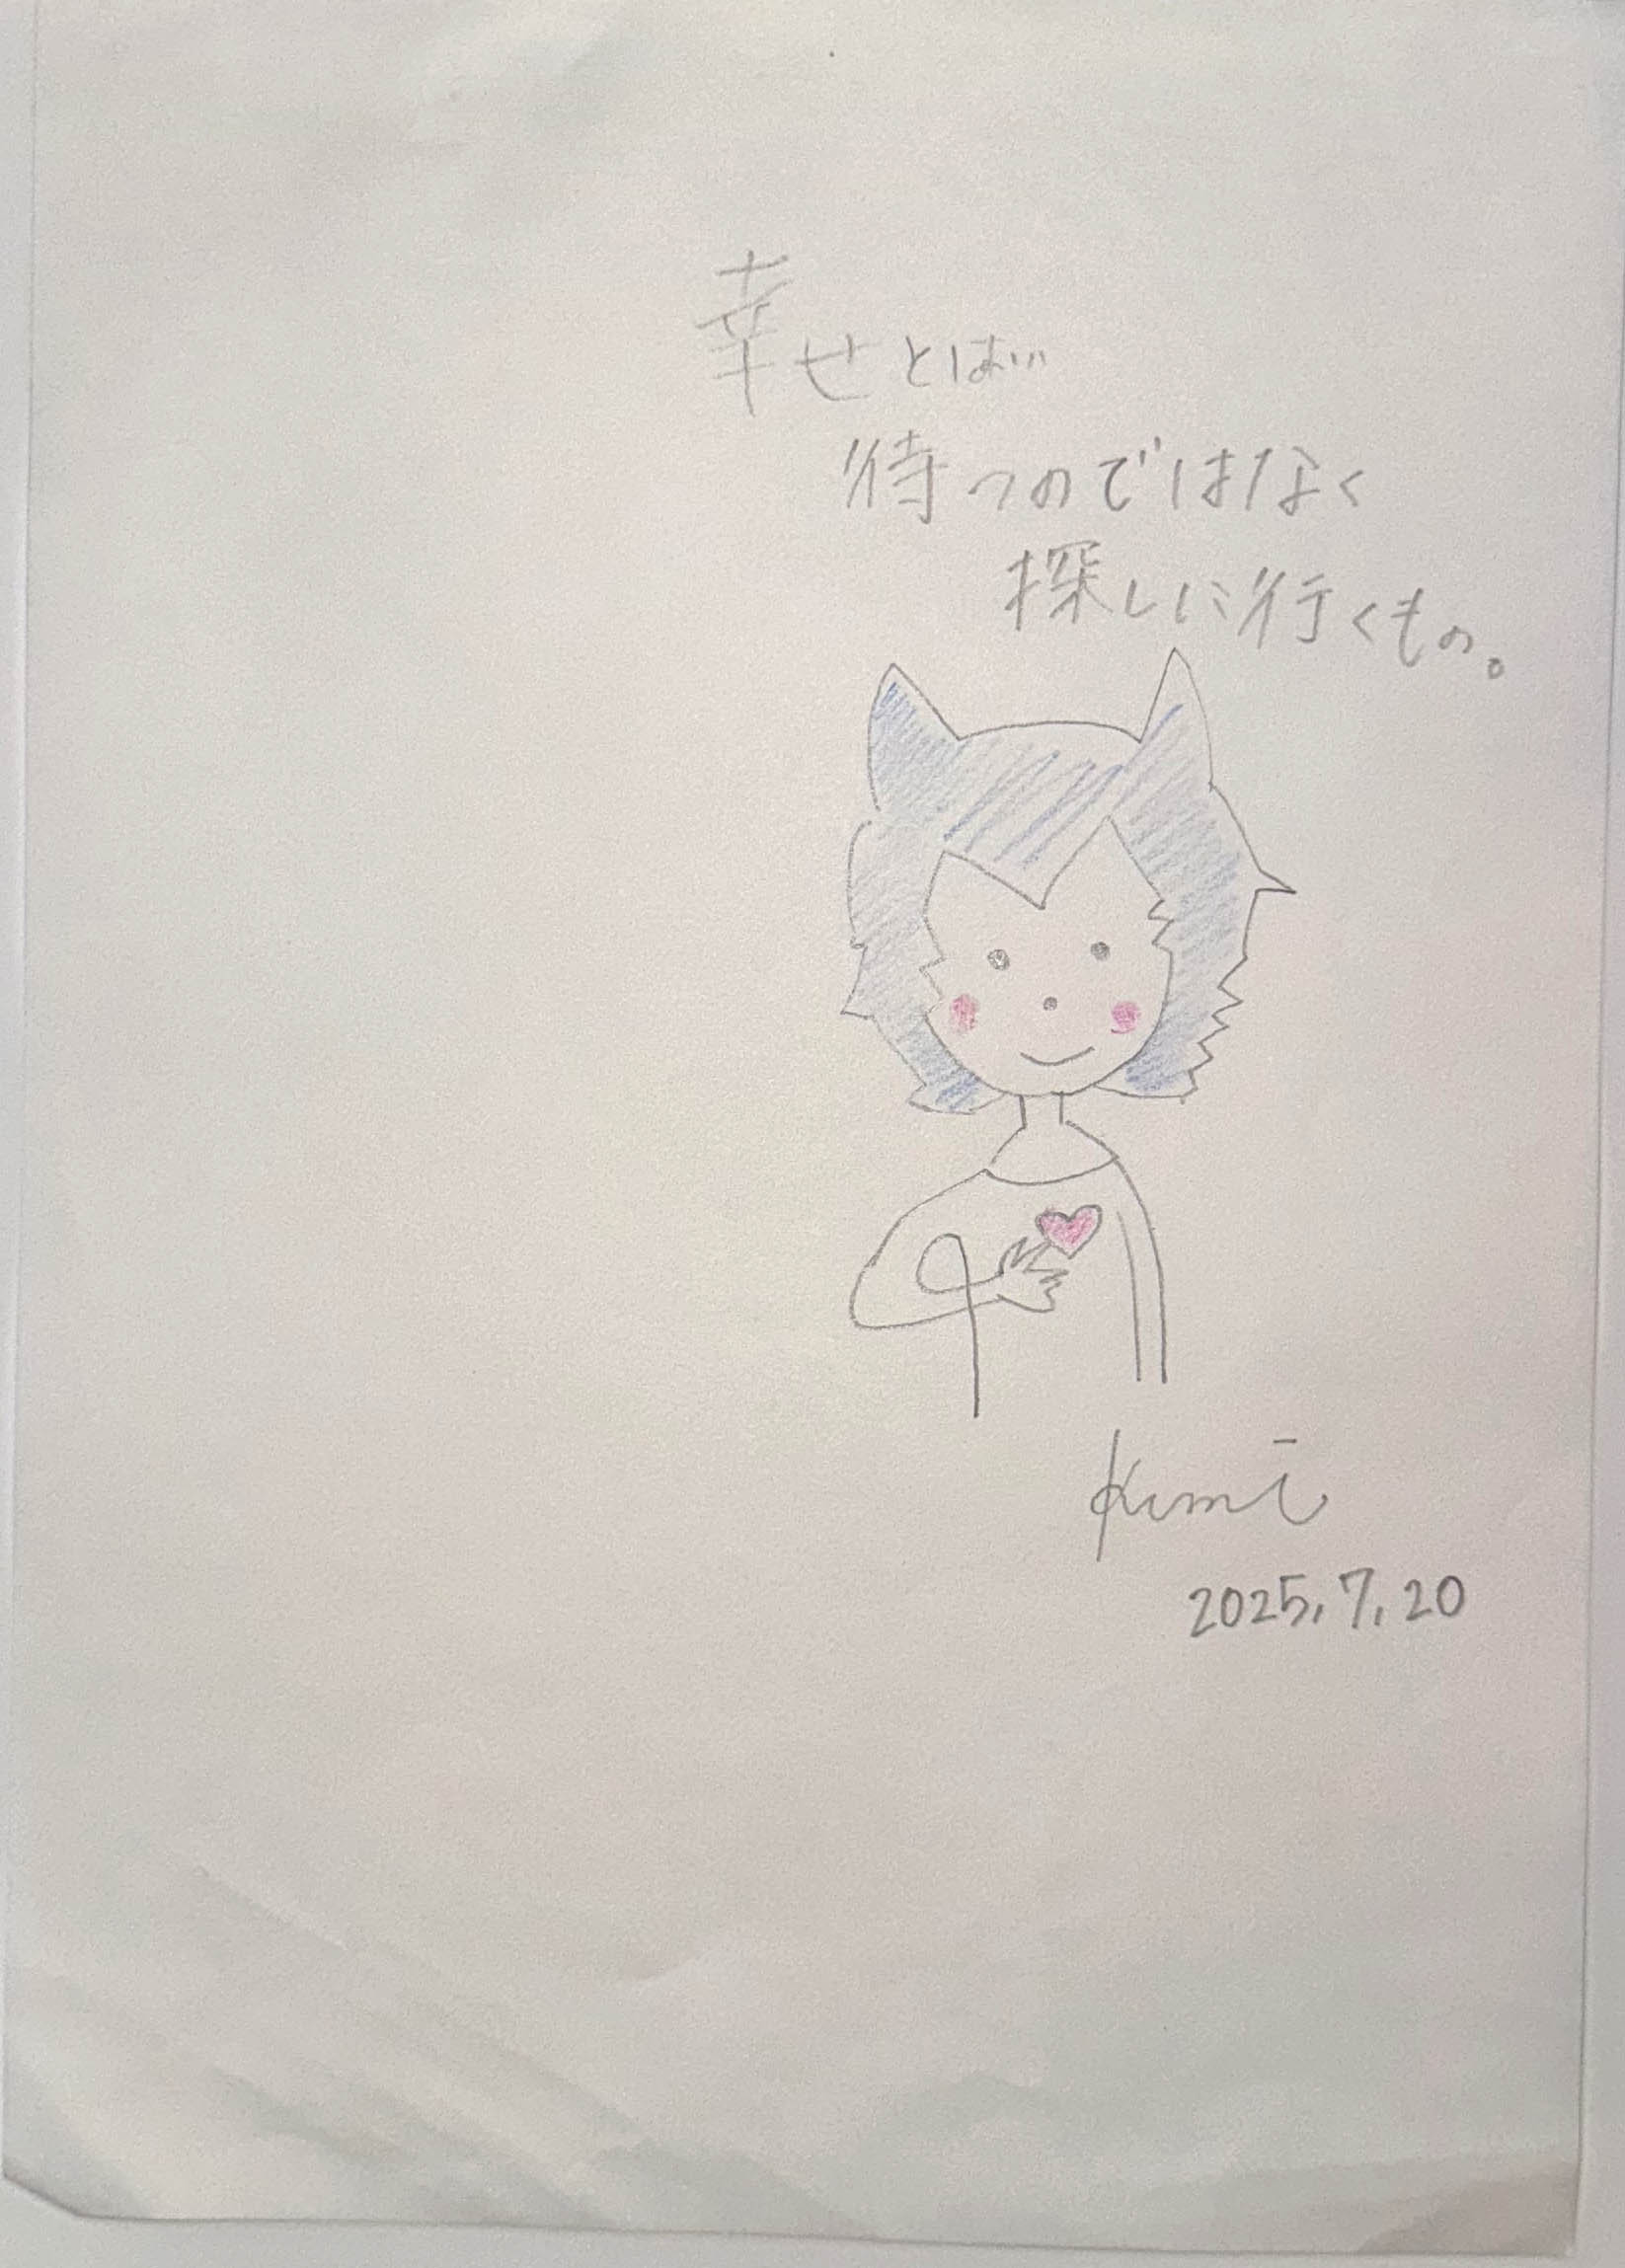 幸せとは…
待つのではなく
探しに行くもの。
Kimi
2025.7.20